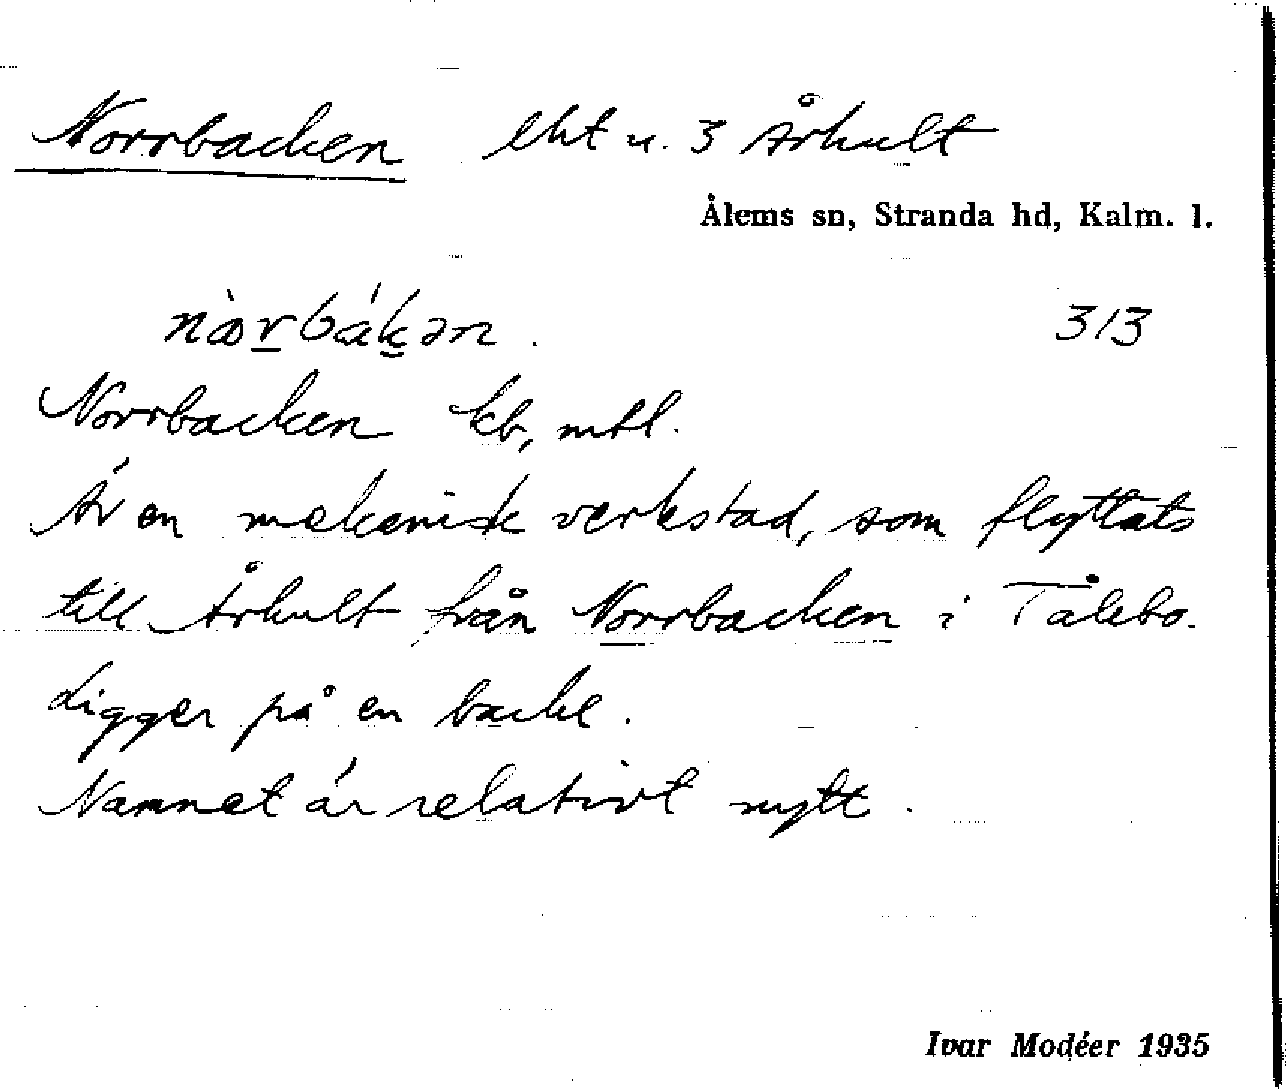 Norrbacken lht u. 3 Århult
Ålems sn, Stranda hd, Kalm. l.
nòrbákən. 313
Norrbacken kb, mtl.
Är en mekanisk verkstad, som flyttats
till Århult från Norrbacken i Tålebo.
Ligger på en backe.
Namnet är relativt nytt.
Ivar Modéer 1935